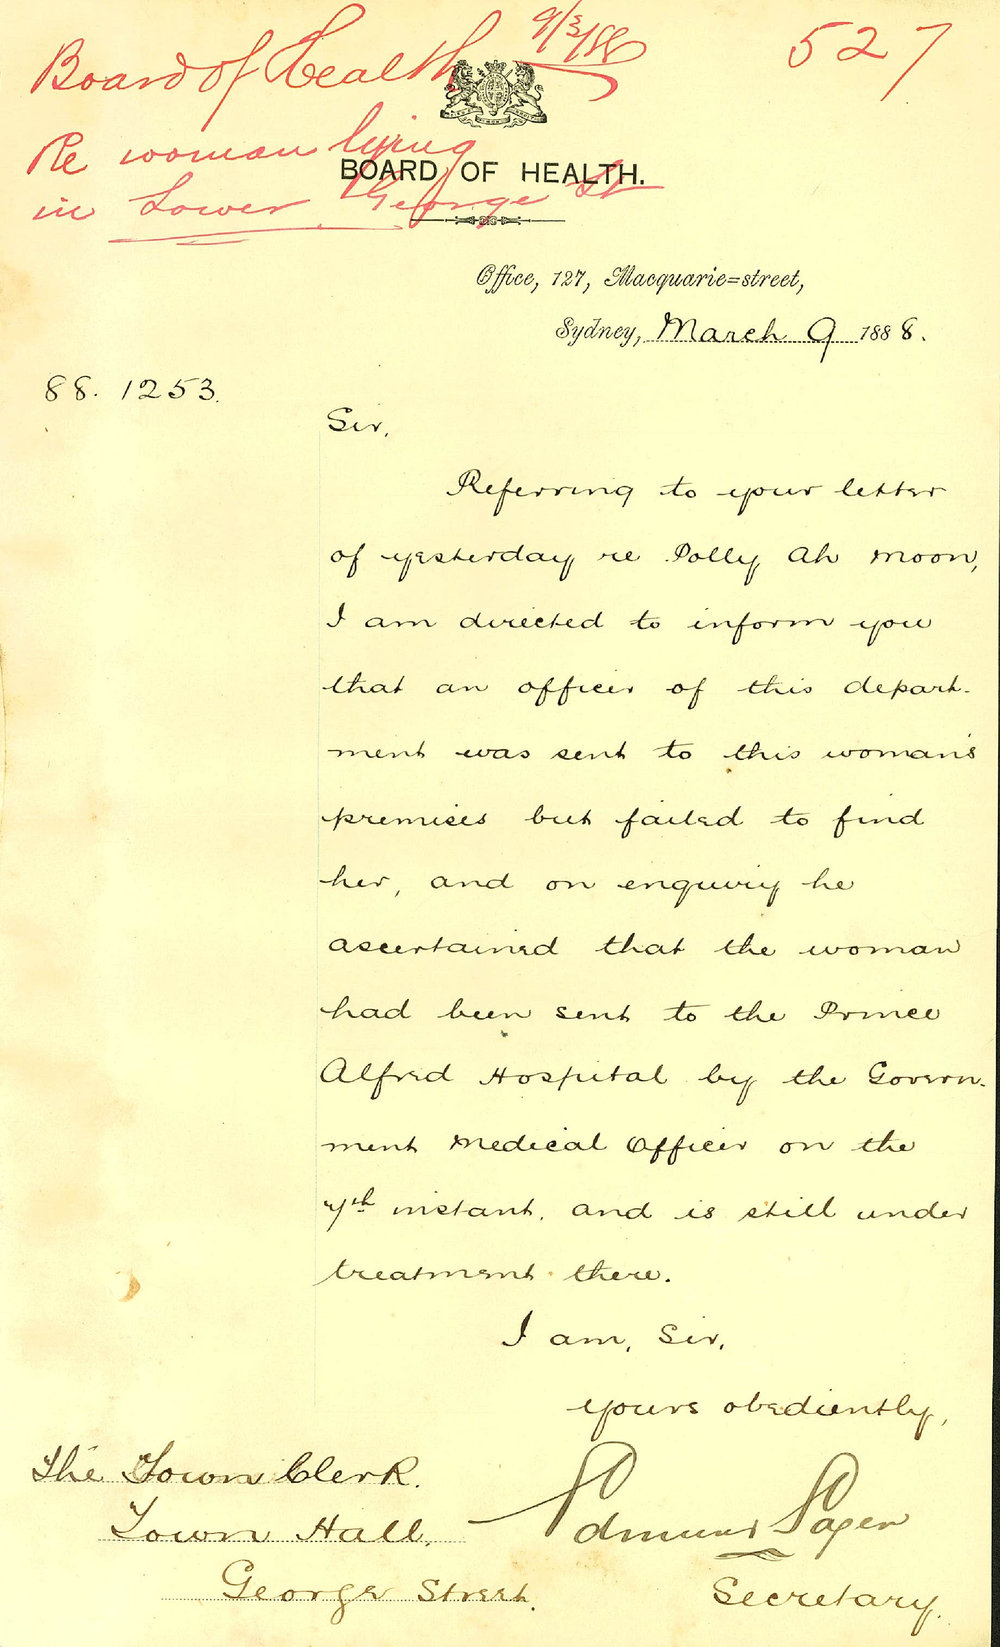 Board of Health 9/3/88
527
Re woman lying
in Lower George St
BOARD OF HEALTH.
Office, 127, Macquarie=street,
Sydney, March 9 1888.
88. 1253.
Sir,
Referring to your letter
of yesterday re Polly Ah Moon,
I am directed to inform you
that an officer of this depart-
ment was sent to this woman's
premises but failed to find
her, and on enquiry he
ascertained that the woman
had been sent to the Prince
Alfred Hospital by the Govern-
ment Medical Officer on the
7th instant, and is still under
treatment there.
I am, Sir,
yours obediently,
Edmund Sager
Secretary.
The Town Clerk.
Town Hall,
George Street.